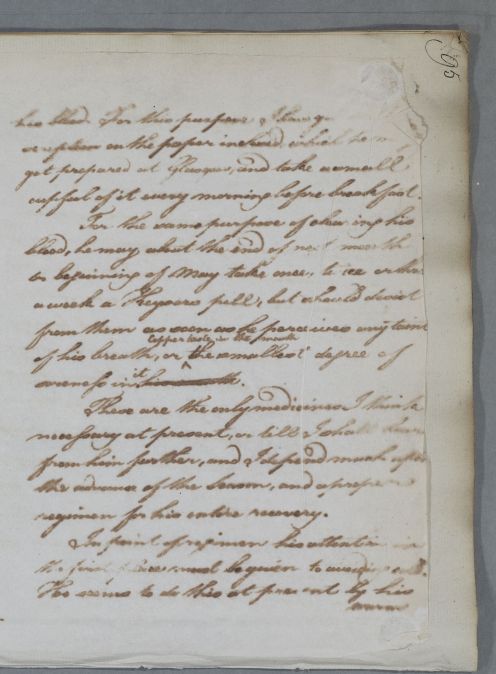 95
his blood. For this purpose I have
on the paper inclosed which he
get prepared at Glasgow, and take a small
cupful of it every morning before breakfast.
For the same purpose of clearing his
blood, he may about the end of next month
or beginning of May take once, twice or
a week a pill, but should desist
from them as soon as he perceives any taint
Copper taste in the mouth
of his breath, or the smallest degree of
soreness in it
These are the only medicines I think
necessary at present, or till I shall hear
from him further, and I depend much upon
the advance of the Season, and a proper
regimen for his entire recovery.
In point of regimen his attention in
the first place must be given to avoiding
He seems to do this at present by his
warm